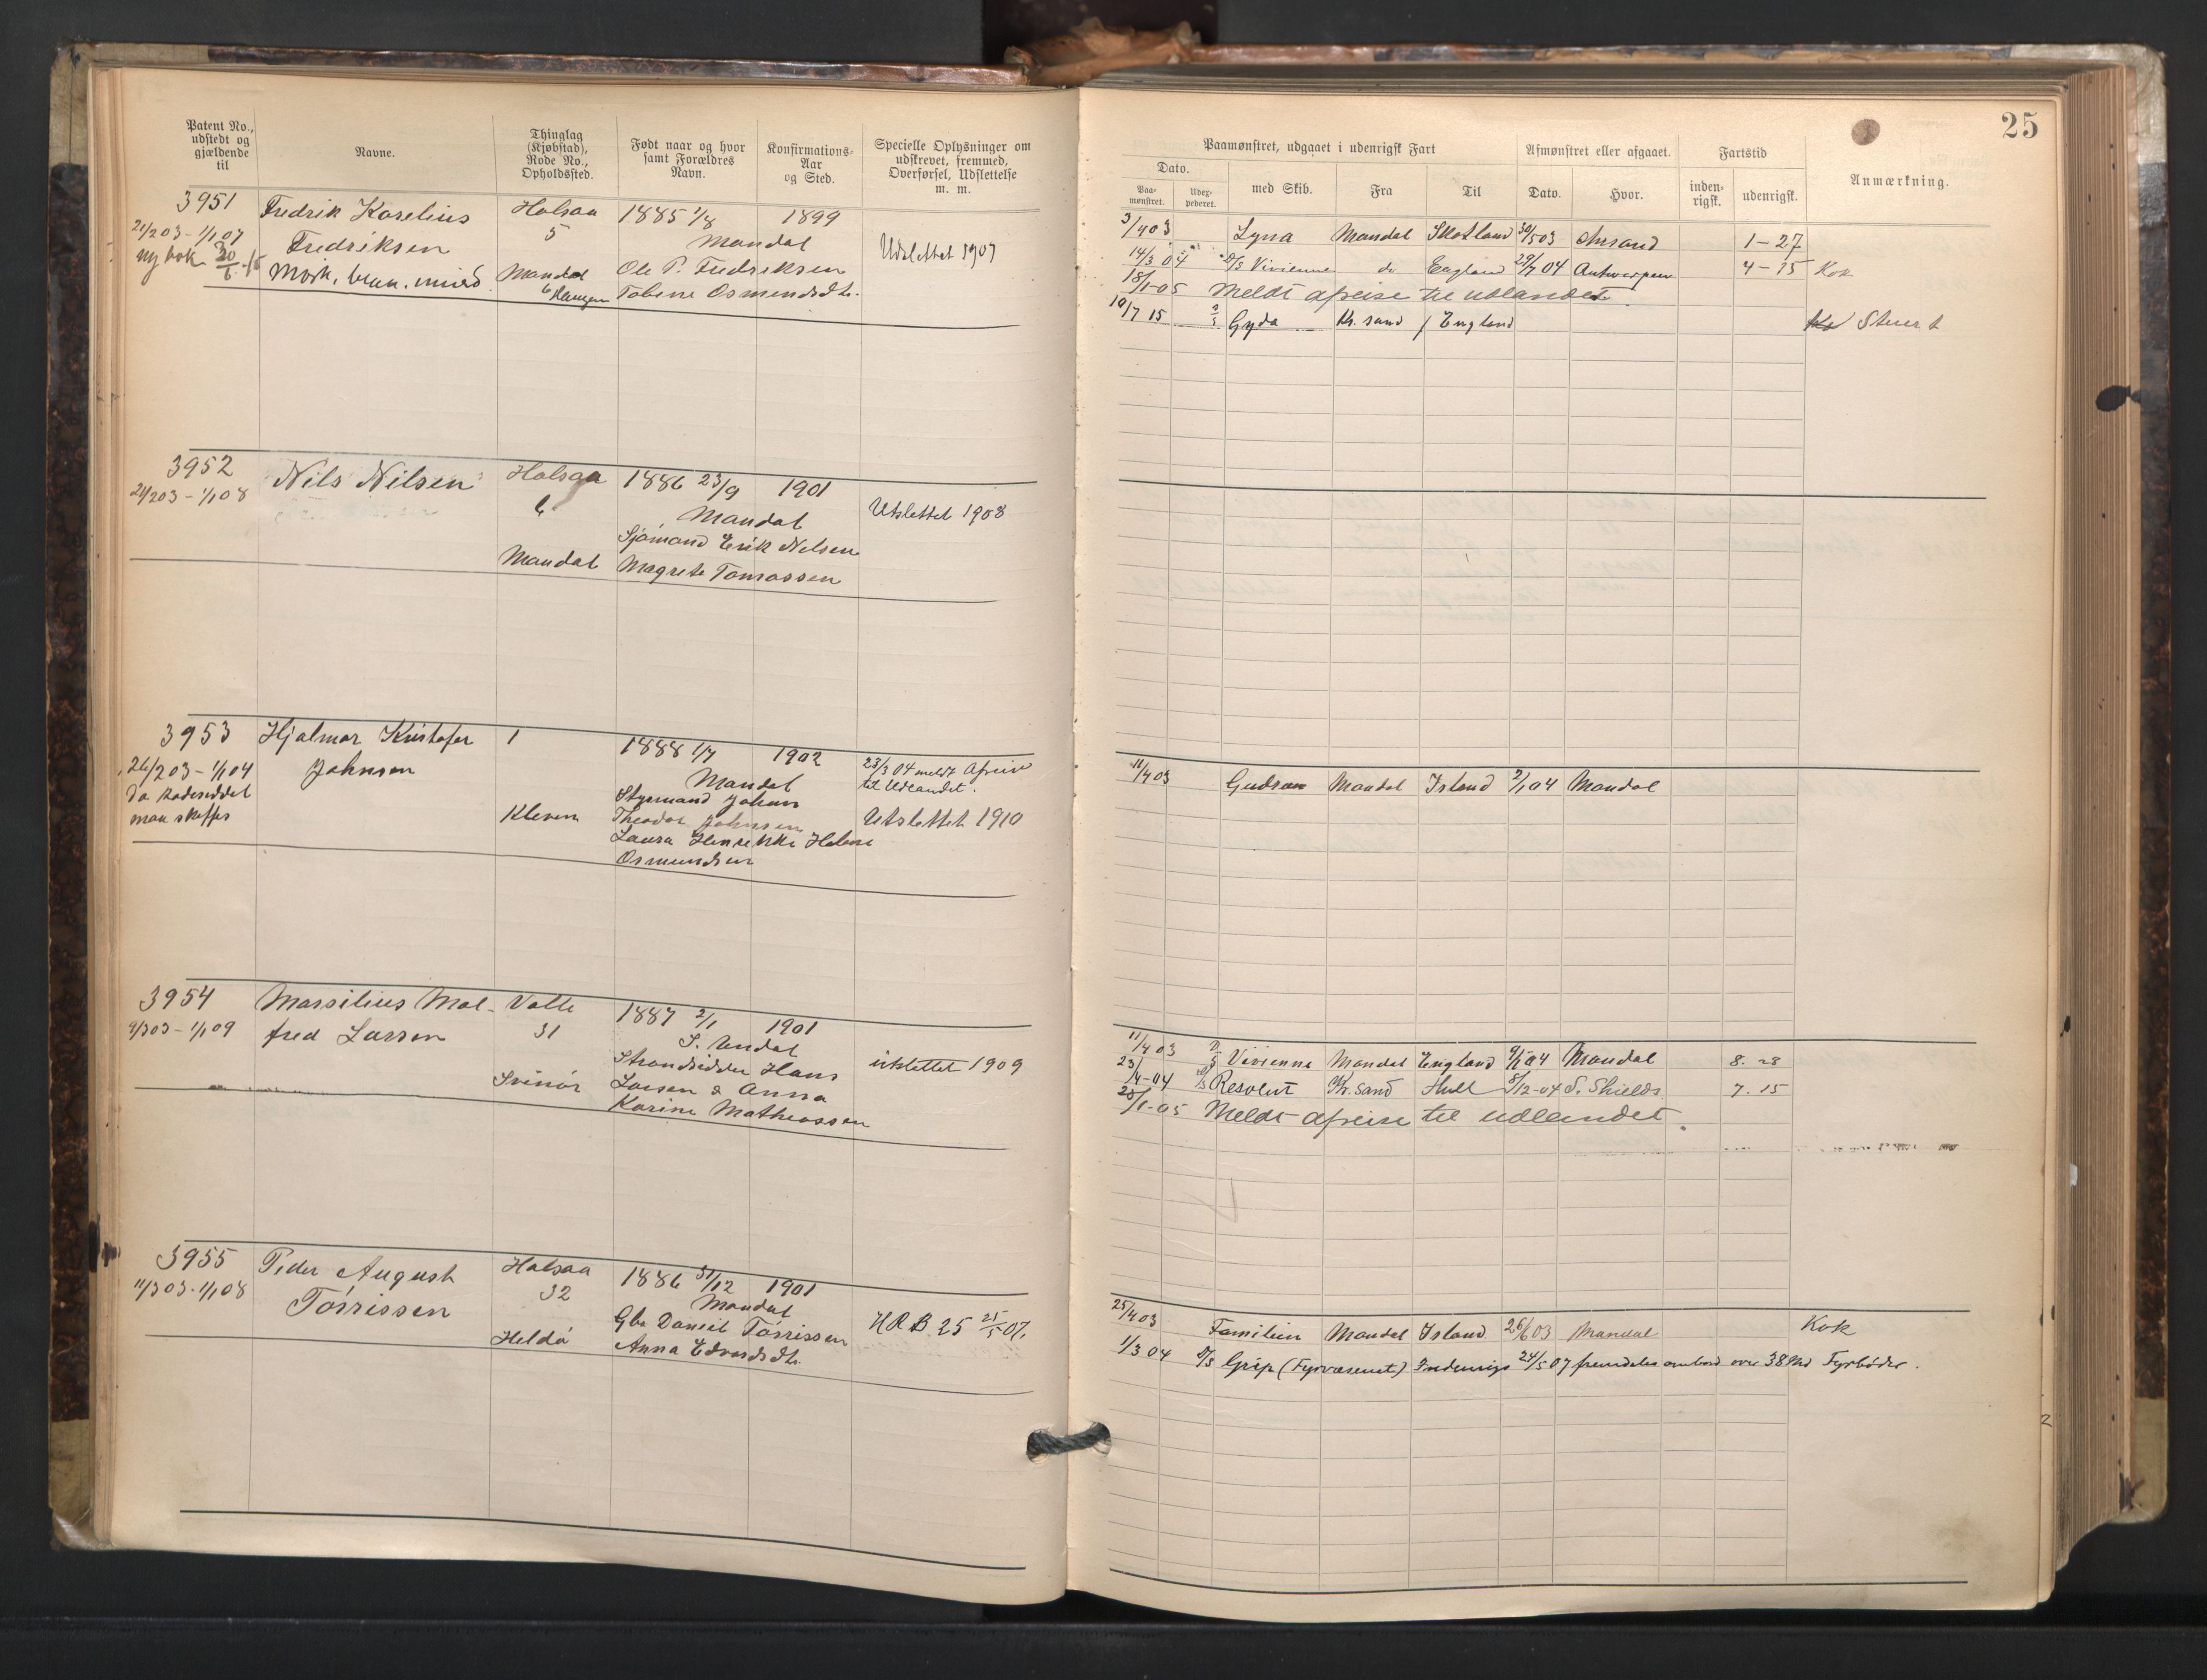 Patent No.,
udstedt og
gjældende
til
Navne.
Thinglag
(Kjøbstad),
Rode No.,
Opholdssted.
Født naar og hvor
samt Forældres
Navn.
Konfirmations-
Aar
og Sted.
Specielle Oplysninger om
udskrevet, fremmed,
Overførsel, Udslettelse
m. m.
3951
21/2 03 - 1/1 07
ny bok 30/6 -15
Fredrik Korelius
Fredriksen
Mørk,
Halsaa
5
Mandal
1885 1/8 1899
Mandal
Ole P. Fredriksen
Tobine Osmundsdtr.
Udslettet 1907
3952
24/2 03 - 1/1 08
Nils Nilsen
Halsaa
6
Mandal
1886 23/9 1901
Mandal
Sjømand Erik Nilsen
Magrete Tomassen
Utslettet 1908
3953
26/2 03 - 1/1 04
Hjalmar Kristofer
Johnsen
1
Kleven
1888 1/7 1902
Mandal
Styrmand Johan
Theodor Johnsen
Laura Henrikke Helene
Osmundsen
23/3 04 meldt Afreise
til Udlandet.
Utslettet 1910
3954
9/3 03 - 1/1 09
Marsilius Mal-
fred Larsen
Valle
31
Svinør
1887 2/1 1901
S. Undal
Strandsidder Hans
Larsen & Anna
Karine Matheassen
utslettet 1909
3955
11/3 03 - 1/1 08
Peder August
Tørrissen
Halsaa
32
Heldø
1886 31/12 1901
Mandal
Gbr. Daniel Tørrissen
Anna Edvardsdtr.
HRB 25 25/5 07.
25
Paamønstret, udgaaet i udenrigsk Fart
Afmønstret eller afgaaet.
Fartstid
Anmærkning.
Dato.
Paa-
mønstret.
Udex-
pederet.
med Skib.
Fra
Til
Dato.
Hvor.
inden-
rigsk.
udenrigsk.
3/4 03 Lyna Mandal Skotland 30/5 03 Chrsand 1 - 27
14/3 04 D/S Vivienne do England 29/7 04 Antwerpen 4 - 15 Kok
18/1-05 Meldt afreise til udlandet.
10/7 15 D/S Gyda Kr.sand / England Stuert
11/4 03 Gudrun Mandal Island 2/1 04 Mandal
11/4 03 D/S Vivienne Mandal England 9/1 04 Mandal 8. 28
23/4-04 D/S Resolut Kr.sand Hull 8/12-04 S. Shields 7. 15
25/1-05 Meldt afreise til udlandet.
25/4 03 Familien Mandal Island 26/6 03 Mandal Kok
1/3 04 D/S Grip (Fyrvæsenet) Indenrigs 24/5 07 fremdeles ombord over 38 Md Fyrbøder.